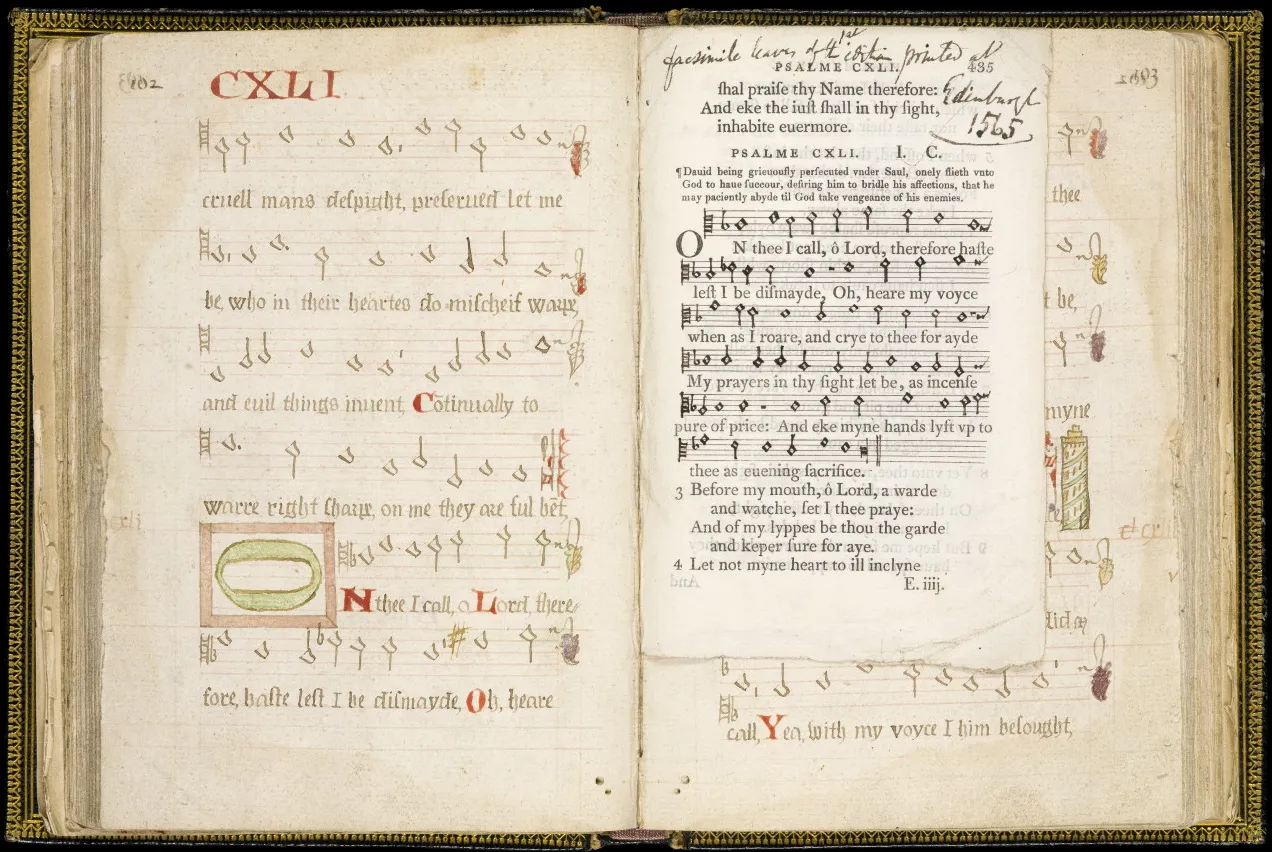 CXLI
cruell mans despight, preserued let me
be, who in their heartes do mischeif warp,
and euil things inuent, Cōtinually to
warre right sharp, on me they are ful bēt,
xli
O
N thee I call, o Lord, there-
fore, haste lest I be dismayde, Oh, heare
facsimile leaves of the 1st edition printed at
Edinburgh
1565
PSALME CXLI. 435
ſhal praiſe thy Name therefore:
And eke the iuſt ſhall in thy ſight,
inhabite euermore.
PSALME CXLI. I. C.
¶Dauid being grieuouſly perſecuted vnder Saul, onely flieth vnto
God to haue ſuccour, deſiring him to bridle his affections, that he
may paciently abyde til God take vengeance of his enemies.
ON thee I call, ô Lord, therefore haſte
leſt I be diſmayde, Oh, heare my voyce
when as I roare, and crye to thee for ayde
My prayers in thy ſight let be, as incenſe
pure of price: And eke myne hands lyſt vp to
thee as euening ſacrifice.
3 Before my mouth, ô Lord, a warde
and watche, ſet I thee praye:
And of my lyppes be thou the garde
and keper ſure for aye.
4 Let not myne heart to ill inclyne
E. iiij.
thee
be,
myne
call, Yea, with my voyce I him besought,